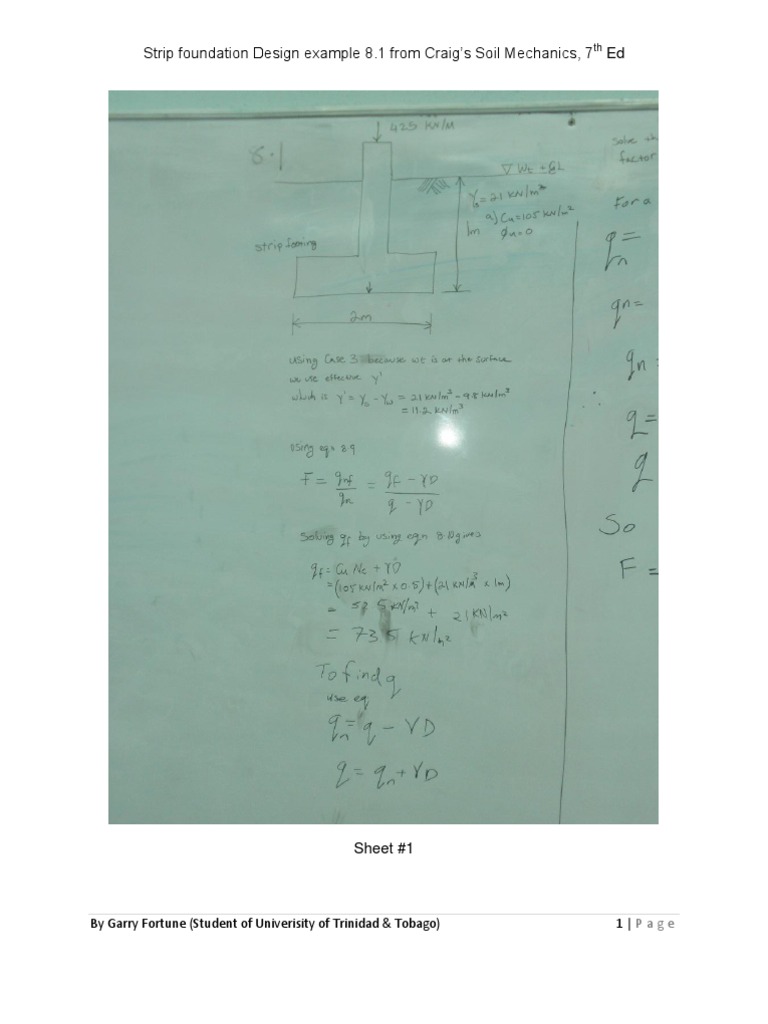 Strip foundation Design example 8.1 from Craig's Soil Mechanics, 7th Ed
8.1
425 kN/M
▽ Wt + GL
γs = 21 kN/m³
a) Cu=105 kN/m²
1m
Øu=0
strip footing
2m
using Case 3 because wt is at the surface
we use effective γ'
which is γ' = γs - γw = 21 kN/m³ - 9.8 kN/m³
= 11.2 kN/m³
using eqn 8.9
F = qnf/qn = qf - γD / q - γD
Solving qf by using eqn 8.10 gives
qf = Cu Nc + γD
= (105 kN/m² x 0.5) + (21 kN/m³ x 1m)
+ 21 kN/m²
= 73.5 kN/m²
To find q
use eq
qn = q - γD
q = qn + γD
solve
factor
For a
qn =
qn =
qn =
∴ q =
q
So
F =
Sheet #1
By Garry Fortune (Student of Univerisity of Trinidad & Tobago)
1 | Page